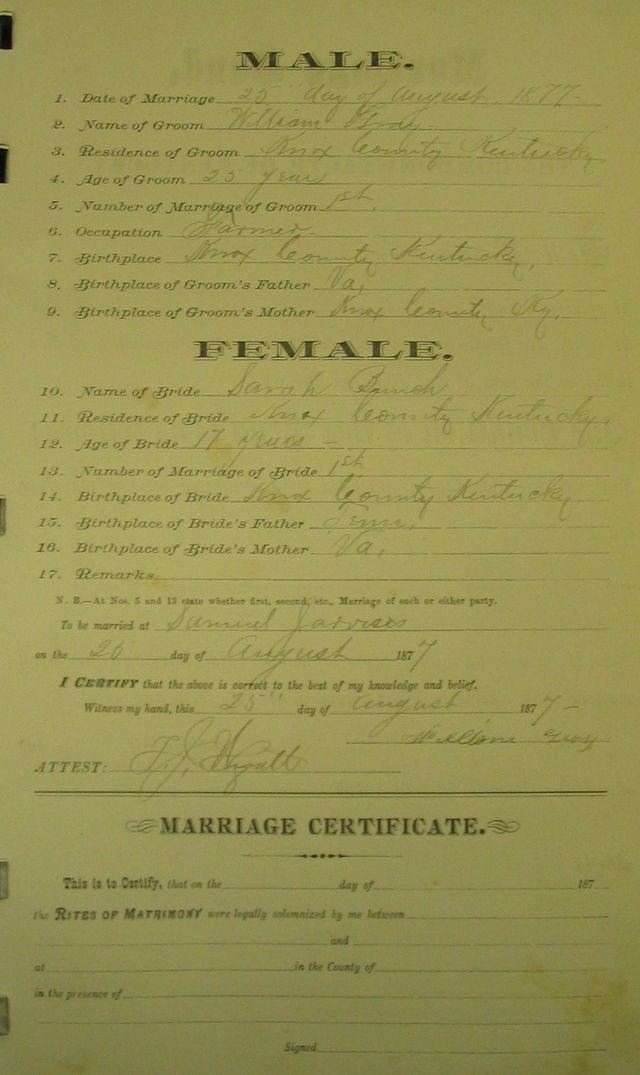 MALE.
1. Date of Marriage 25" day of August, 1877-
2. Name of Groom William
3. Residence of Groom Knox County Kentucky
4. Age of Groom 25 years
5. Number of Marriage of Groom 1st,
6. Occupation Farmer-
7. Birthplace Knox County Kentucky,
8. Birthplace of Groom's Father Va,
9. Birthplace of Groom's Mother Knox County Ky,
FEMALE.
10. Name of Bride Sarah Bunch
11. Residence of Bride Knox County Kentucky,
12. Age of Bride 17 years -
13. Number of Marriage of Bride 1st
14. Birthplace of Bride Knox County Kentucky
15. Birthplace of Bride's Father Tenn,
16. Birthplace of Bride's Mother Va,
17. Remarks
N. B.—At Nos. 5 and 13 state whether first, second, etc., Marriage of each or either party.
To be married at Samuel Jarvises
on the 25 day of August 1877
I CERTIFY that the above is correct to the best of my knowledge and belief.
Witness my hand, this 25" day of August 1877-
William
ATTEST: Wyatt
MARRIAGE CERTIFICATE.
This is to Certify, that on the day of 187
the RITES OF MATRIMONY were legally solemnized by me between
and
at in the County of
in the presence of
Signed